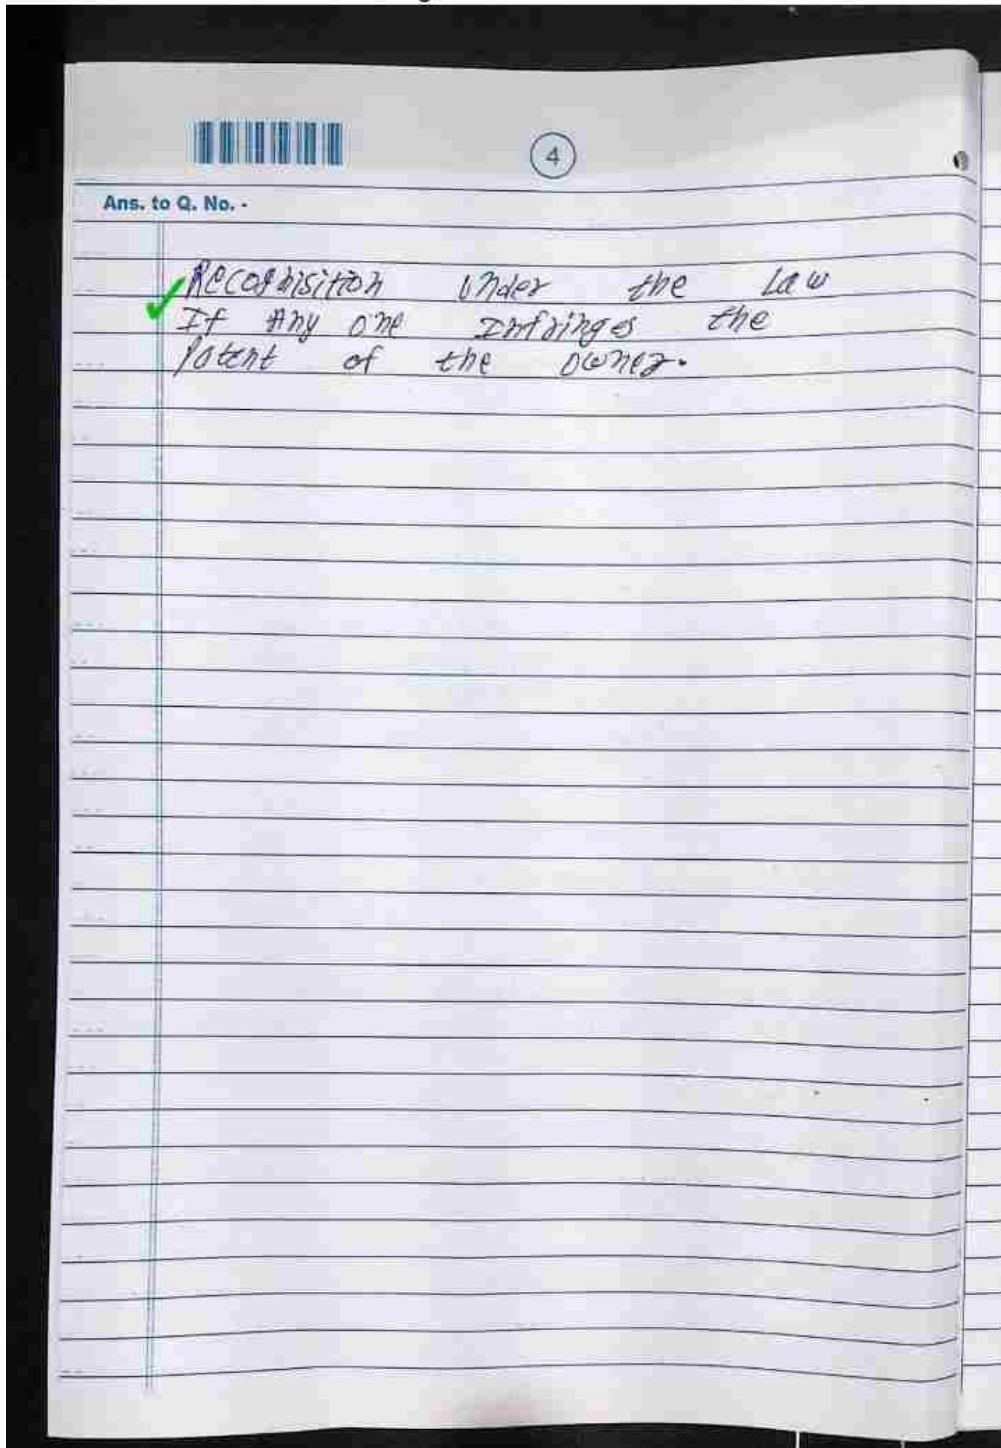 4
Ans. to Q. No. -
Recognisition under the Law
If Any one Infringes the
Patent of the owner.